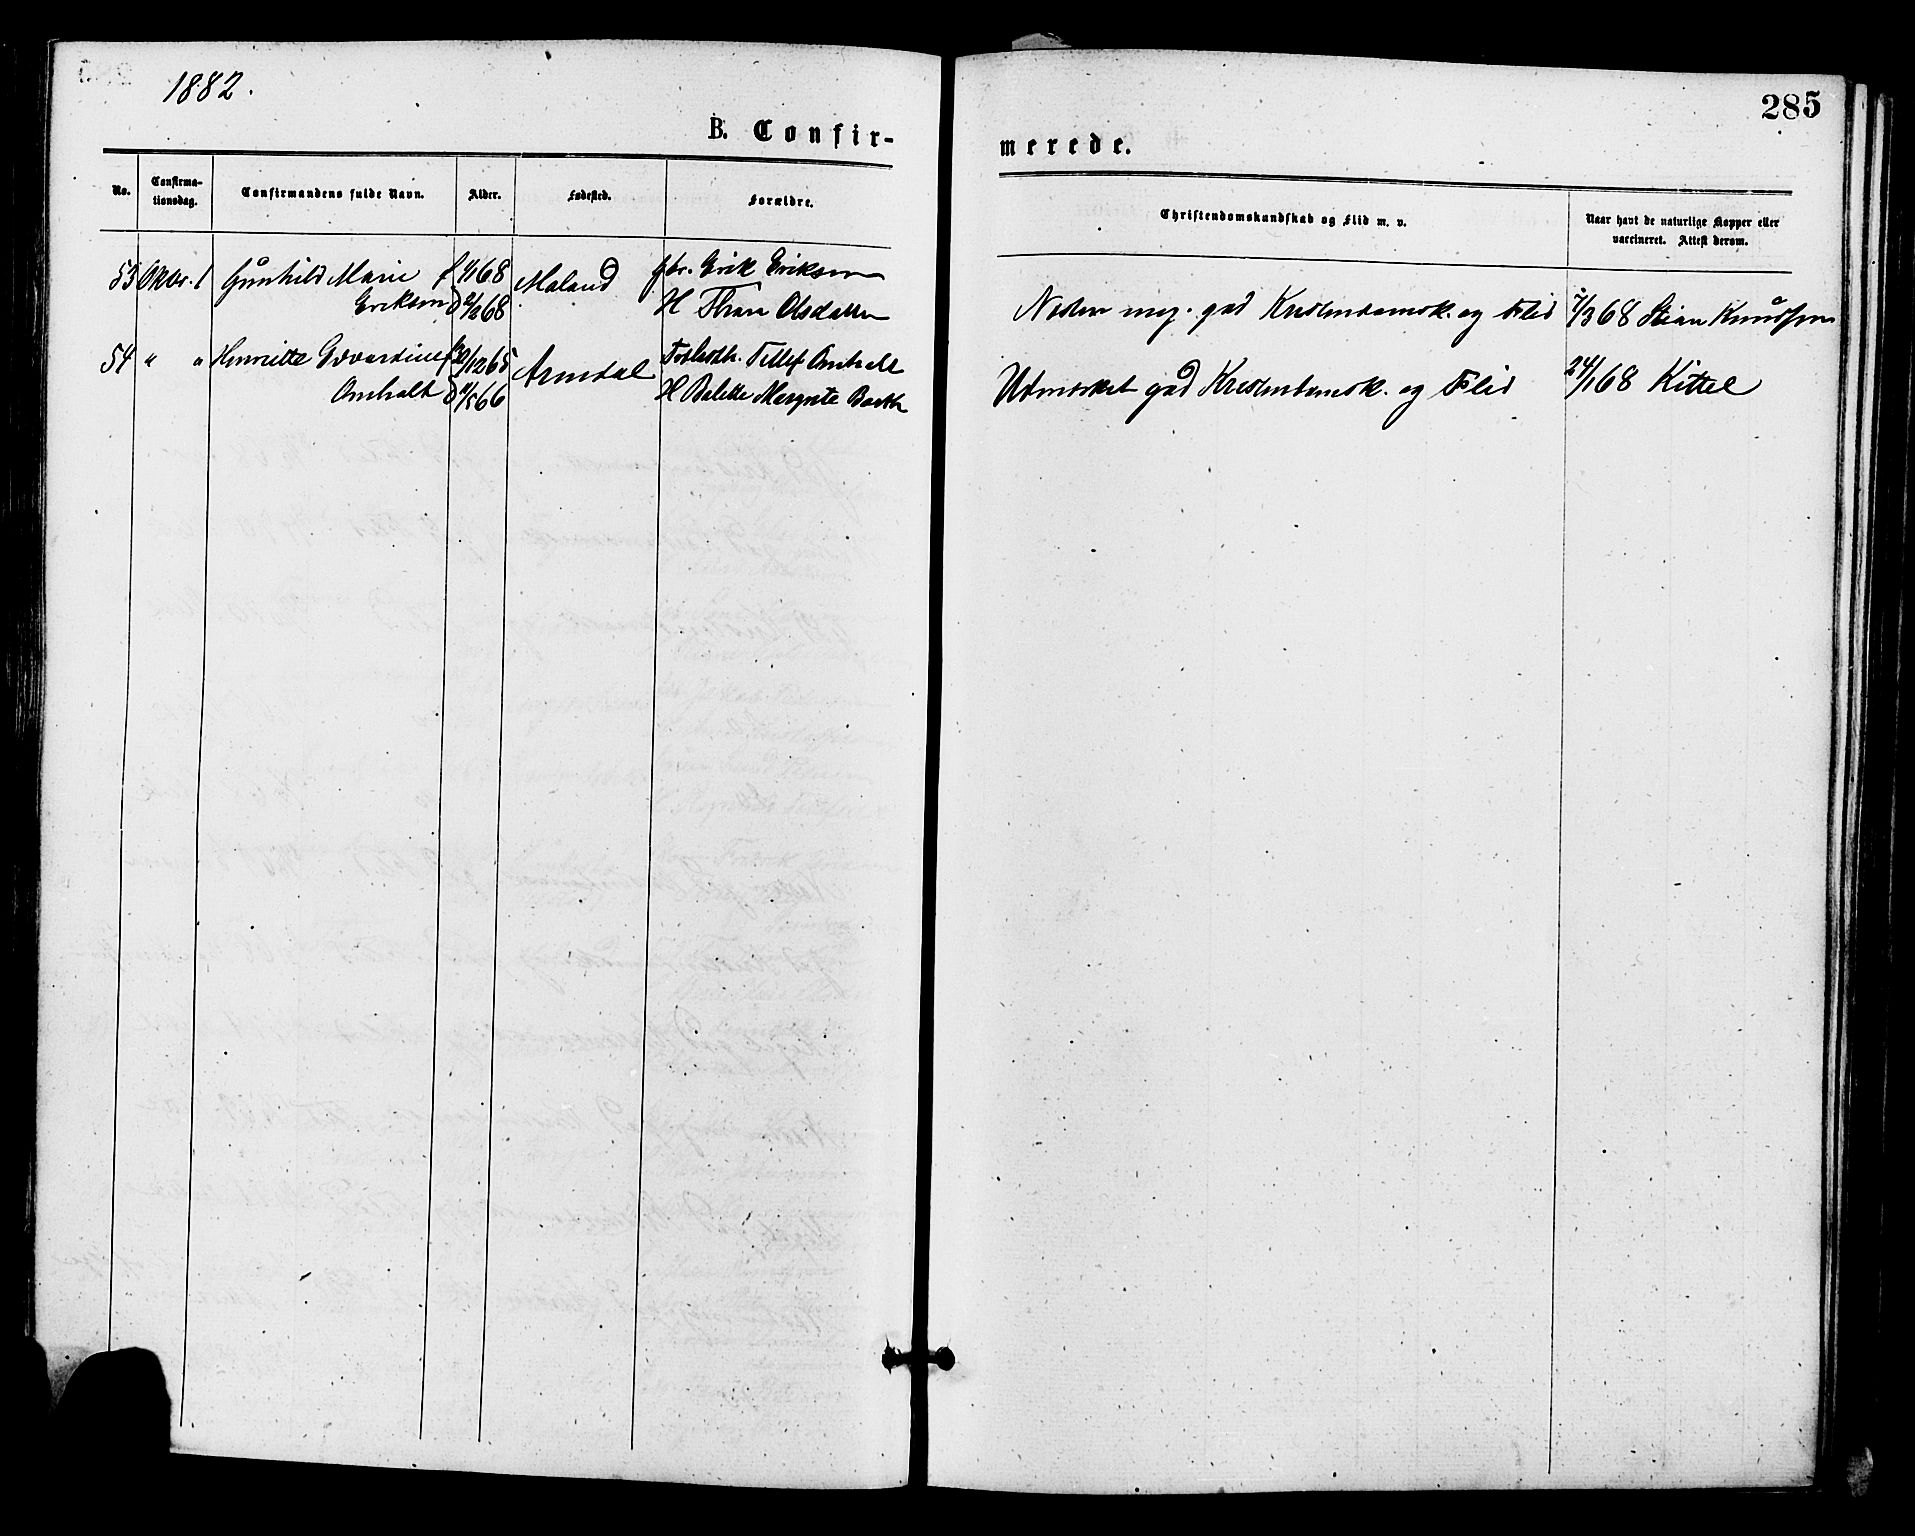 1882.
285
B. Confir-
merede.
No.
Confirma-
tionsdag.
Confirmandens fulde Navn.
Alder.
Fødested.
Forældre.
Christendomskundskab og Flid m. v.
Naar havt de naturlige Kopper eller
vaccineret. Attest derom.
53 Oktbr. 1 Gunhild Marie f 4/1 68 Moland Gbr. Erik Eriksen
Eriksen d 2/2 68 H Olsdatter
Nesten meg. god Kristendomsk. og Flid 7/3 68 Stian Knudsen
54 " " Henriette Edvardine f 30/12 65 Arendal Tellef Omholt
Omholt d 21/5 66 H Bolette Margrete Barth
Utmerket god Kristendomsk. og Flid 24/1 68 Kittel